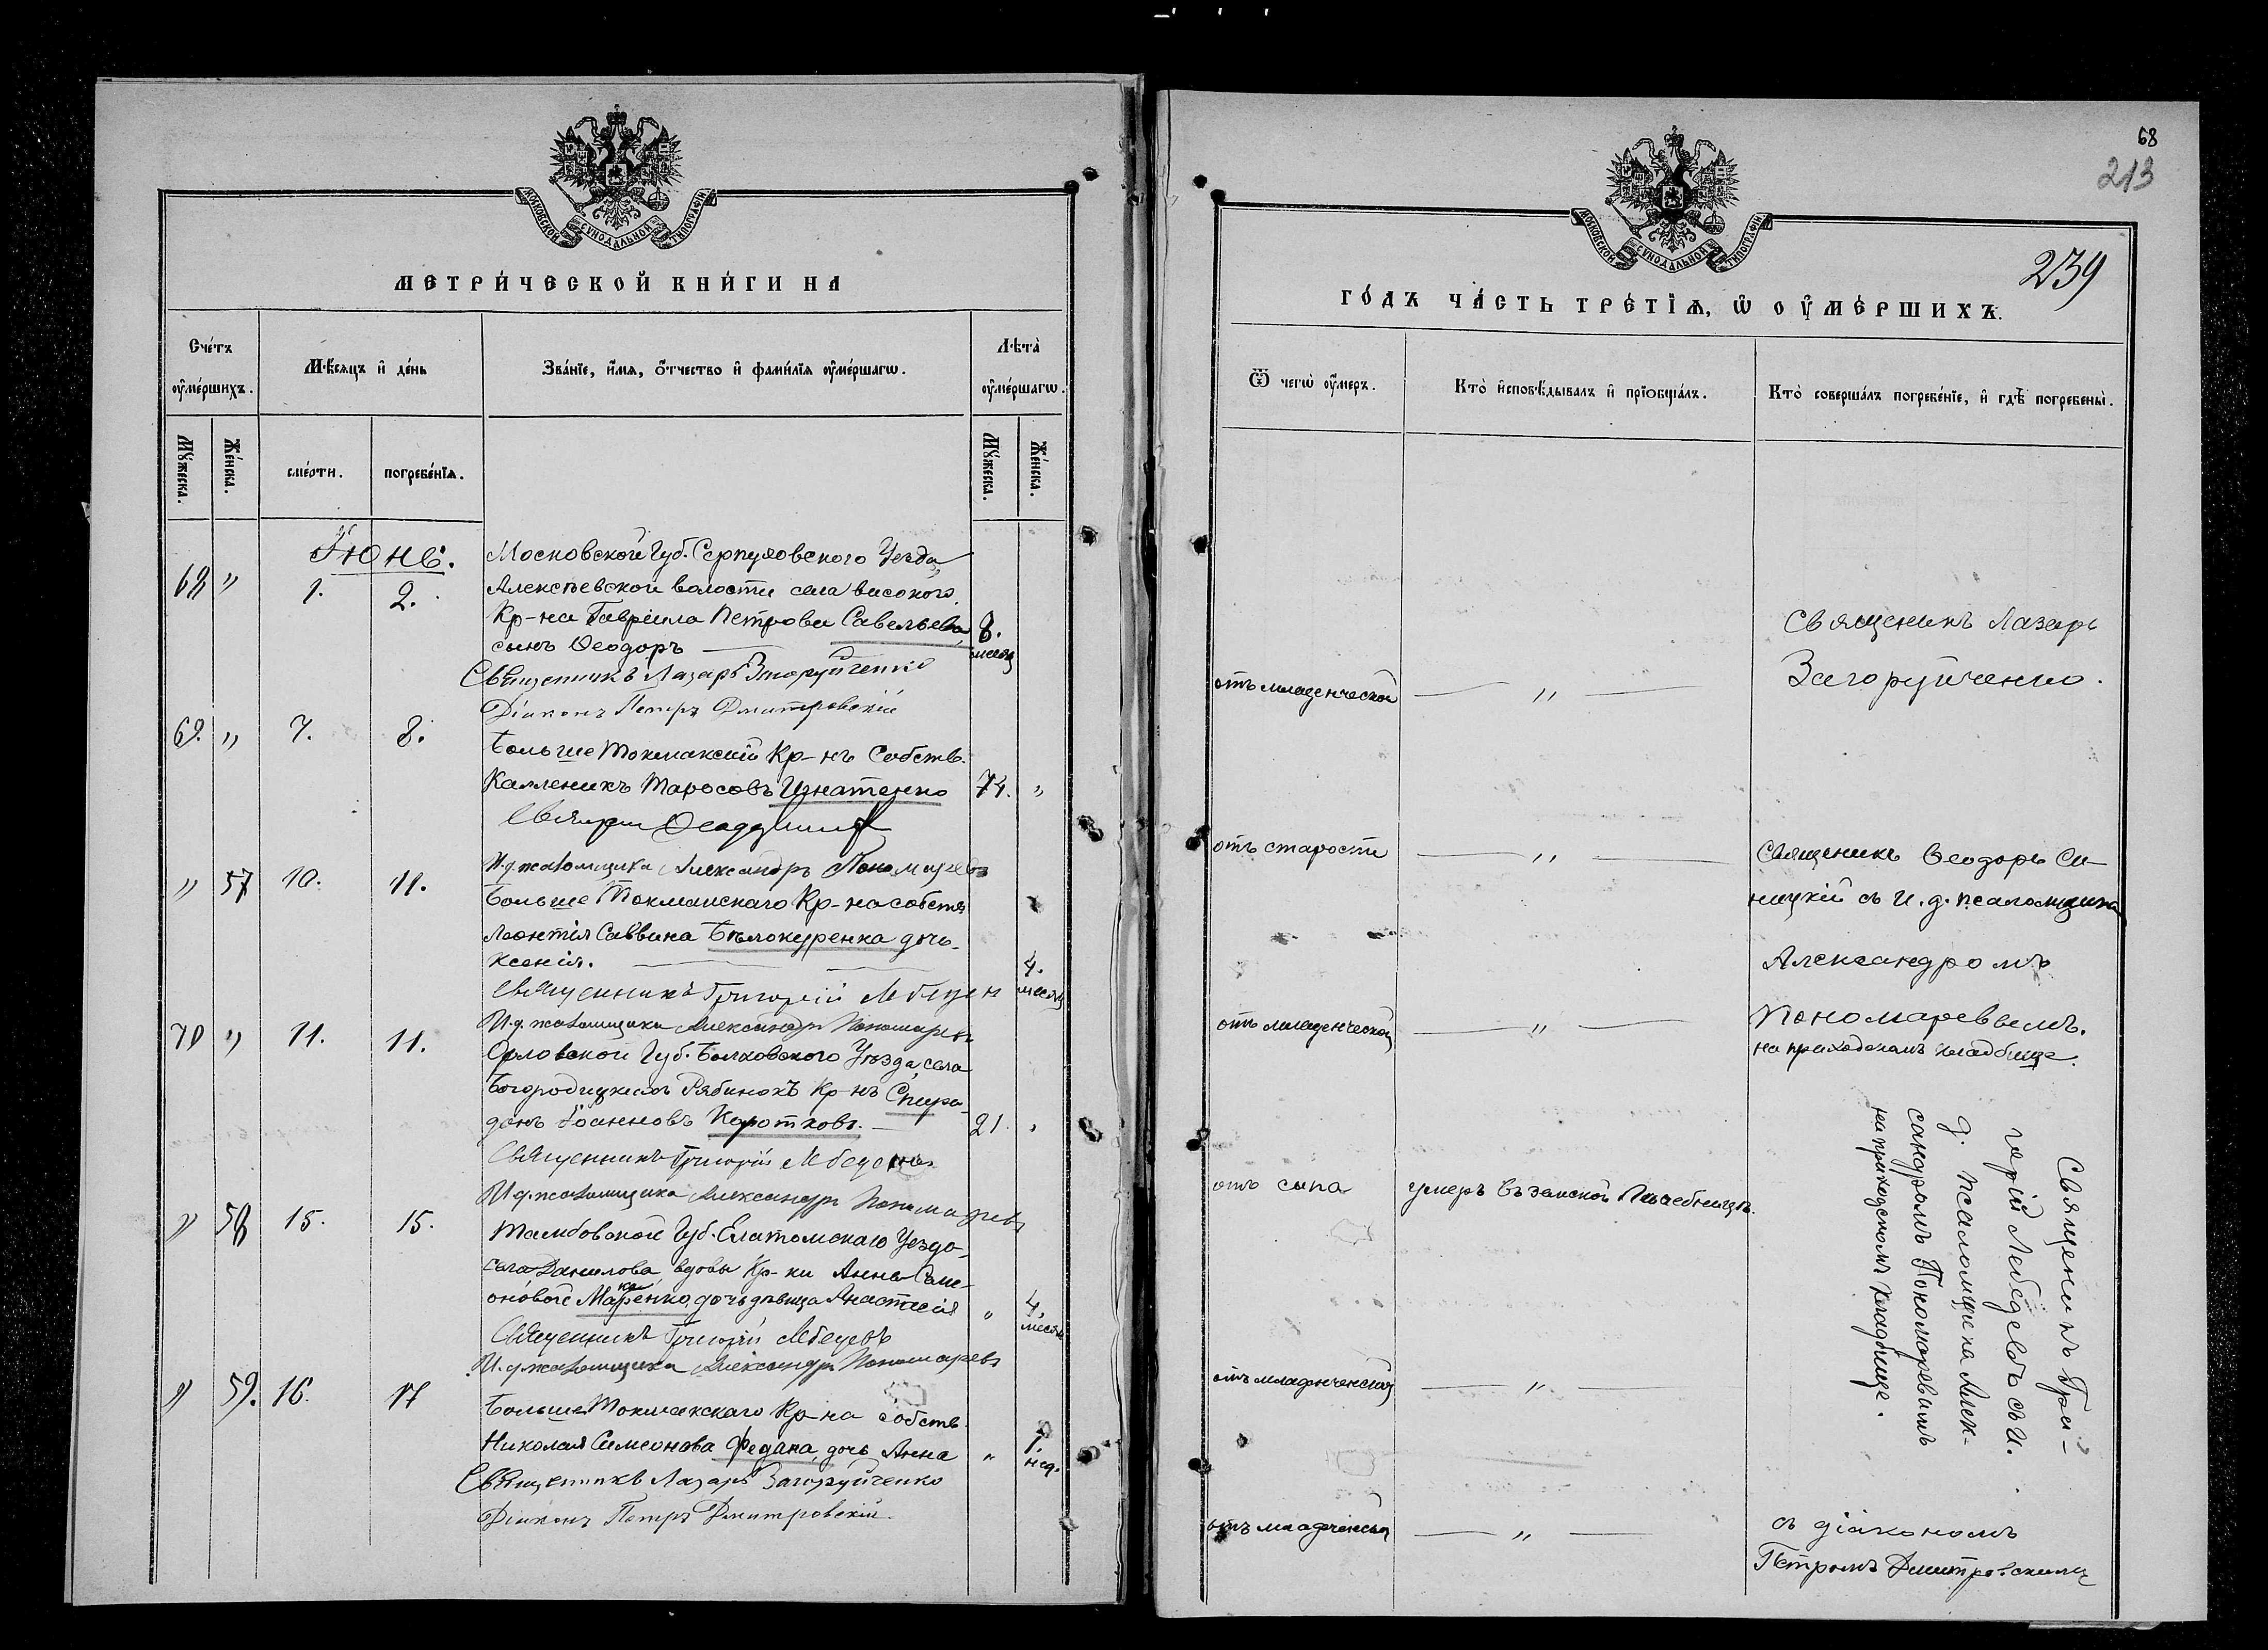 МОСКОВСКОЙ СѴНОДАЛЬНОЙ ТИПОГРАФІИ
МЕТРИ́ЧЕСКОЙ КНИ́ГИ НА
Сче́тъ ᲂу҆ме́ршихъ.
Мѣ́сяцъ и҆ де́нь
Зва́нїе, и҆́мѧ, ѻ҆́тчество и҆ фами́лїѧ ᲂу҆ме́ршагѡ.
Лѣ́та ᲂу҆ме́ршагѡ.
Мꙋ́жеска.
Же́нска.
сме́рти.
погребе́нїѧ.
Мꙋ́жеска.
Же́нска.
Іюнь.
68 " 1. 2.
Московской Губ. Серпуховского Уезда,
Алексѣевской волости села високого
Кр-на Гавріила Петрова Савельева
сынъ Ѳеодоръ 8. месяц
Священникъ Лазарь Загоруйченко
Діаконъ Петръ Дмитровскій
69. " 7. 8.
Больше Токмакскій Кр-нъ Собств.
Калленикъ Таросовъ Игнатенко 74. "
" 57 10. 11.
И.д. псаломщика Александръ Пономаревъ
Больше Токмакскаго Кр-на собств
Леонтія Саввина Бѣлокуренка дочь
Ксенія. 4. месяц
Священникъ Григорій Лебедев
70 " 11. 11.
И.д. псаломщика Александръ Пономаревъ
Орловской Губ. Болховского Уѣзда, села
Богородицкихъ Рябинокъ Кр-нъ Спири-
донъ Іоанновъ Коротковъ. 21.
Священникъ Григорій Лебедевъ
" 58 15. 15.
И.д. псаломщика Александръ Пономаревъ
Тамбовской Губ. Елатомскаго Уезда
села Данилова вдовы Кр-ки Анны Симе-
оновой дочь дѣвица Анастасія " 4. месяц
Священникъ Григорій Лебедевъ
И.д. псаломщика Александръ Пономаревъ
" 59. 16. 17
Больше Токмакскаго Кр-на собств.
Николая Симеонова Федана, дочь Анна " 1. нед.
Священникъ Лазарь Загоруйченко
Діаконъ Петръ Дмитровскій.
68
213
239
МОСКОВСКОЙ СѴНОДАЛЬНОЙ ТИПОГРАФІИ
ГО́ДЪ ЧА́СТЬ ТРЕ́ТЇѦ, Ѡ҆ ОУ҆МЕ́РШИХЪ.
Ѿ чегѡ̀ ᲂу҆́меръ.
Кто̀ и҆сповѣ́дывалъ и҆ прїѻбща́лъ.
Кто̀ соверша́лъ погребе́нїе, и҆ гдѣ̀ погребены̀.
отъ младенческой — " —
Священикъ Лазарь
Загоруйченко.
отъ старости — " —
Священикъ Ѳеодоръ Си-
ницкій съ И. д. псаломщика
Александромъ
Пономаревемъ.
на приходскомъ кладбище.
отъ младенческой — " —
отъ сыпа умеръ въ земской Лѣчебницѣ.
Священикъ Гри-
горій Лебедевъ съ И.
д. псаломщика Алек-
сандромъ Пономаревымъ
на приходскомъ кладбище.
отъ младенческой — " —
отъ младенческой — " —
съ діакономъ
Петромъ Дмитровскимъ